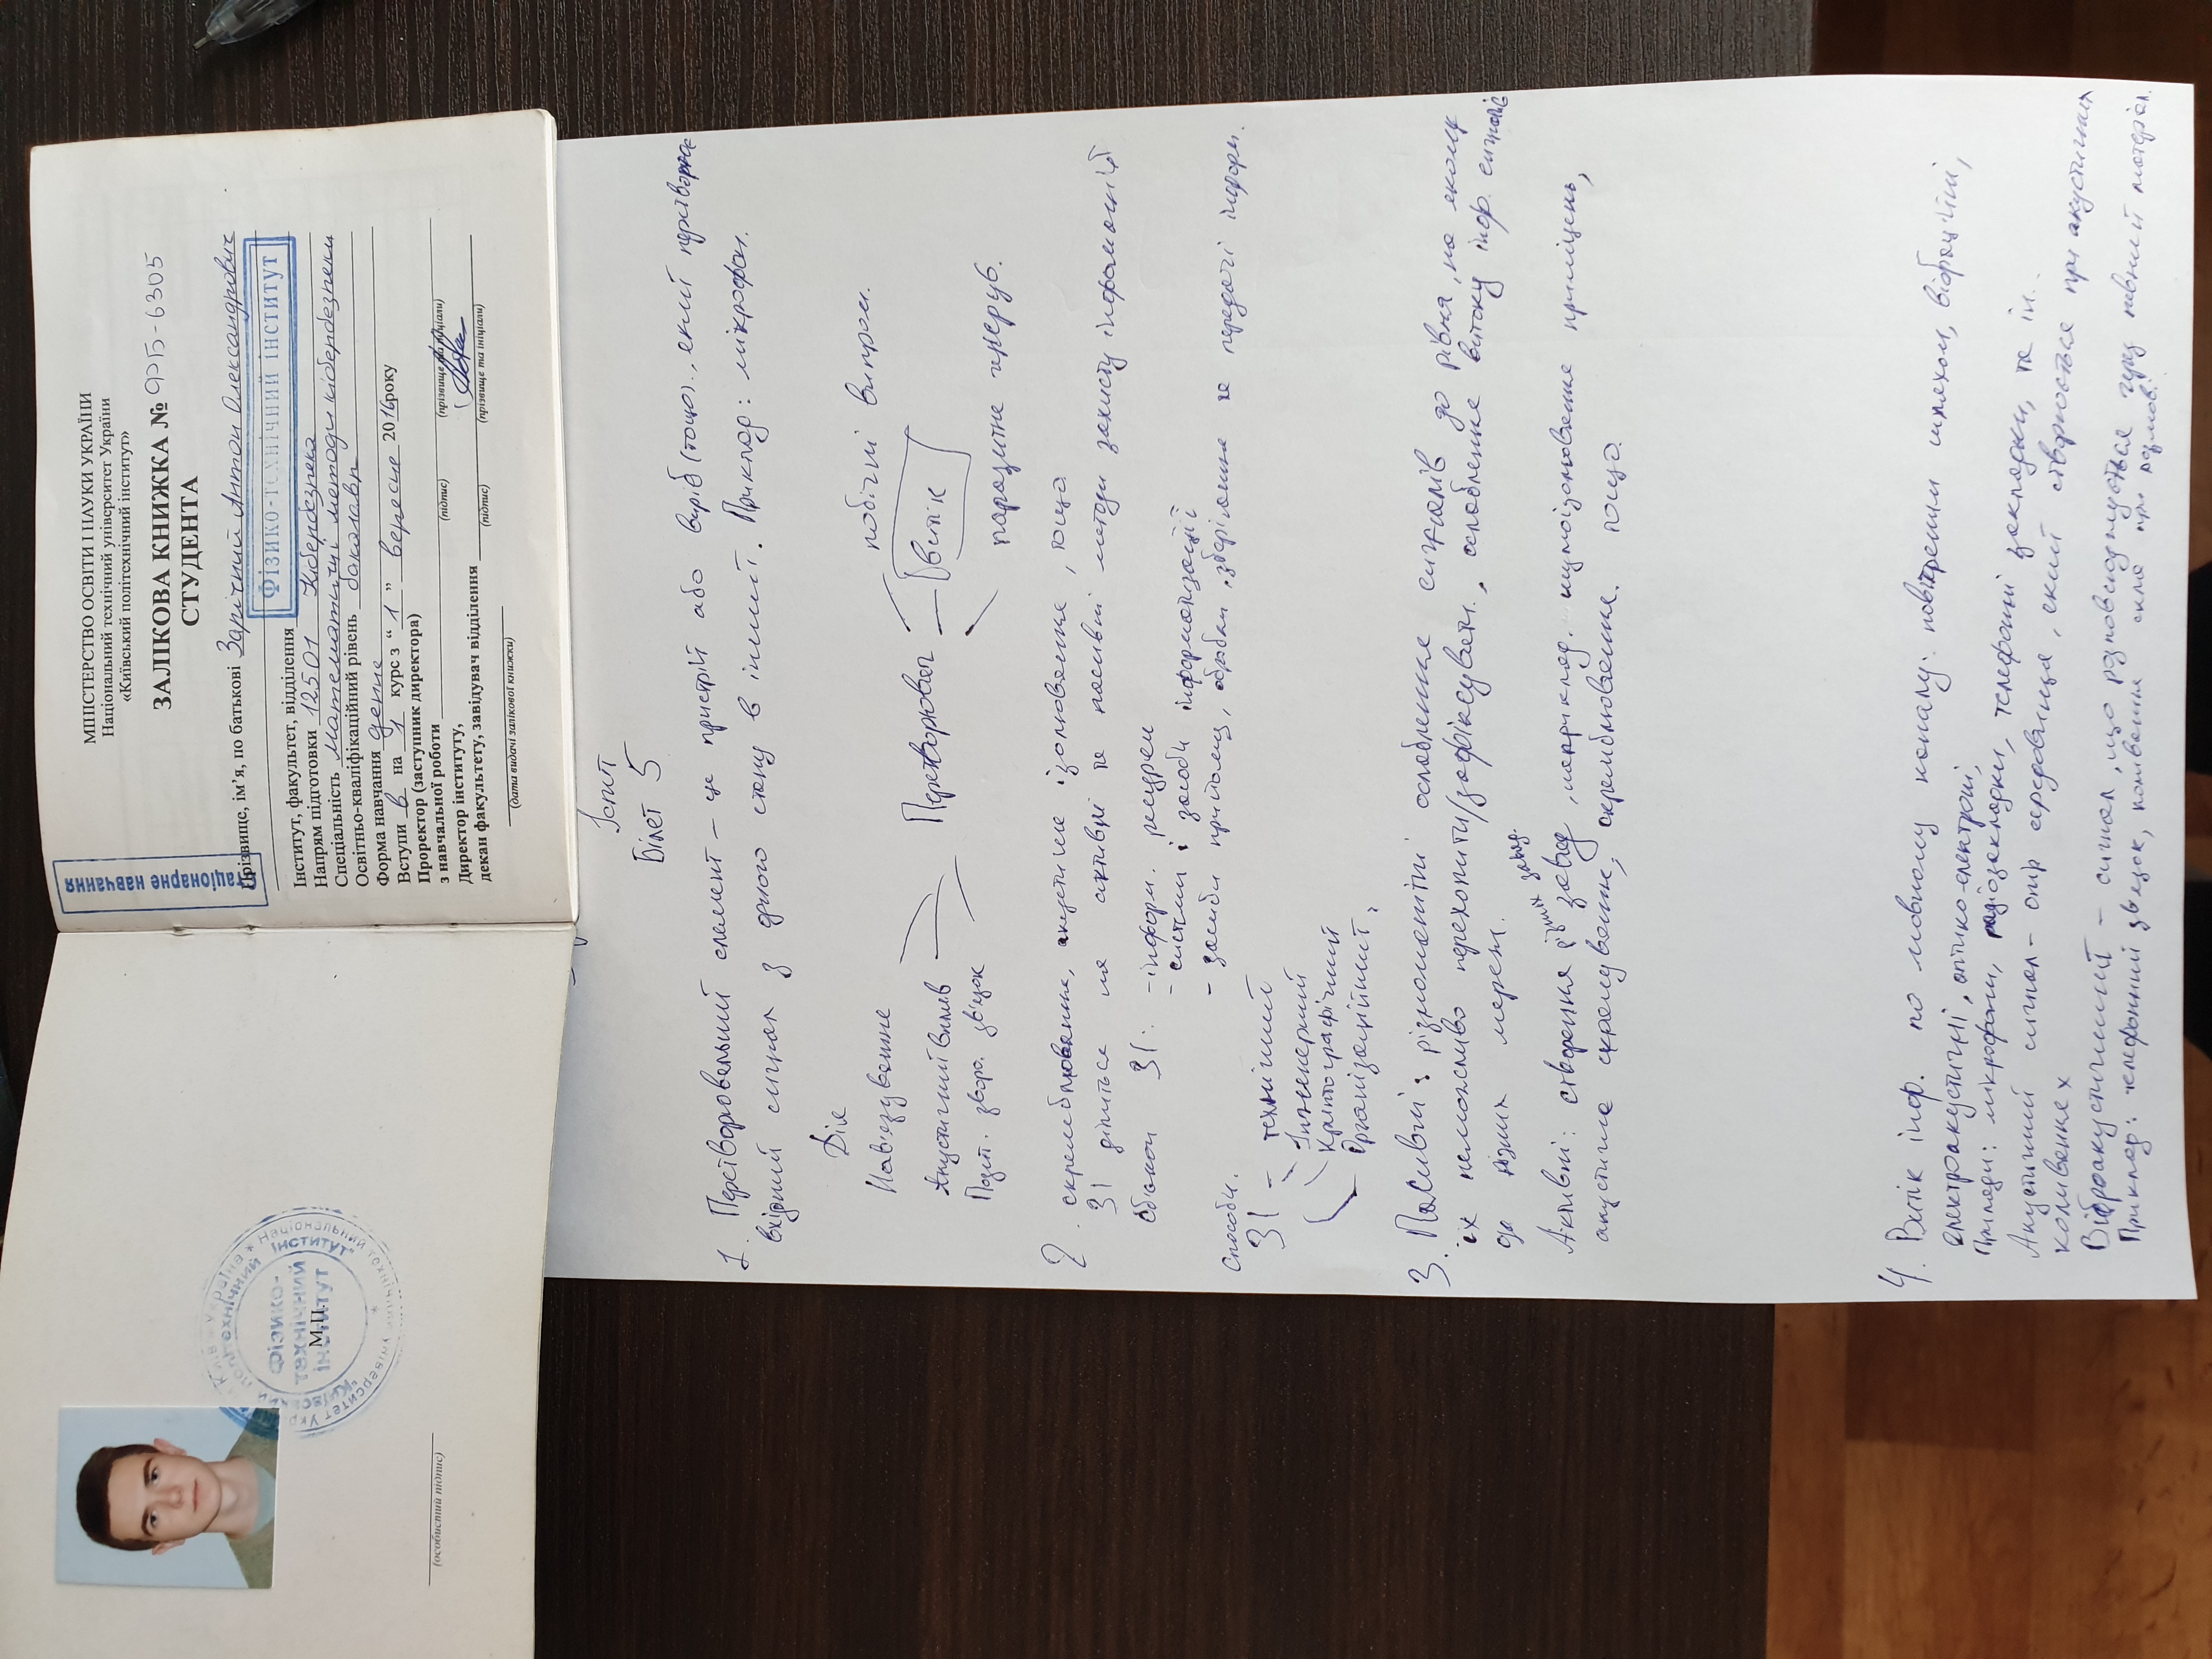 Стаціонарне навчання
МІНІСТЕРСТВО ОСВІТИ І НАУКИ УКРАЇНИ
Національний технічний університет України
«Київський політехнічний інститут»
ЗАЛІКОВА КНИЖКА № ФБ-6305
СТУДЕНТА
Прізвище, ім’я, по батькові Зарічний Антон Олександрович
Інститут, факультет, відділення Фізико-технічний інститут
Напрям підготовки 125.01 Кібербезпека
Спеціальність Математичні методи кібербезпеки
Освітньо-кваліфікаційний рівень бакалавр
Форма навчання денна
Вступи в на 1 курс з “ 1 ” вересня 2016року
Проректор (заступник директора)
з навчальної роботи
(підпис) (прізвище та ініціали)
Директор інституту,
декан факультету, завідувач відділення
(підпис) (прізвище та ініціали)
(дата видачі залікової книжки)
Фізико-
технічний
інститут
М.П.
(особистий підпис)
Іспит
Білет 5
1. Перетворювальний елемент – це пристрій або виріб (тощо)., який перетворює
вхідний сигнал з одного стану в інший. Приклад: мікрофон.
Дія
Нав'язування
Акустичний вплив
Позит. зворо. зв'язок
Перетворювач
побічні випром.
витік
паразитна генерув.
2. скремблювання, акустичне ізолювання, тощо
ЗІ ділиться на активні та пасивні методи захисту інформації
Об'єкти ЗІ: - інформ. ресурси
- системи і засоби інформатизації
- засоби прийому, обробки, зберігання та передачі інформ.
Способи.
ЗІ – технічний
Інженерний
Криптографічний
Організаційний
3. Пасивні: різноманітні ослаблення сигналів до рівня, на якому
їх неможливо перехопити/зафіксувати., ослаблення витоку інф. сигналів
до різних мереж.
Активні: створення різних завад, наприклад. шумоізолювання приміщень,
акустичне екранування, скремблювання. тощо.
4. Витік інф. по мовному каналу: повітряним шляхом, вібраційні,
електроакустичні, оптико-електроні,
Прилади: мікрофони, радіозакладки, телефонні закладки, та ін..
Акустичний сигнал – опір середовища, який створюється при акустичних
коливаннях
Віброакустичний – сигнал, що розповсюджується через певний матеріал.
Приклад: телефонний зв'язок, коливання скла при розмові.